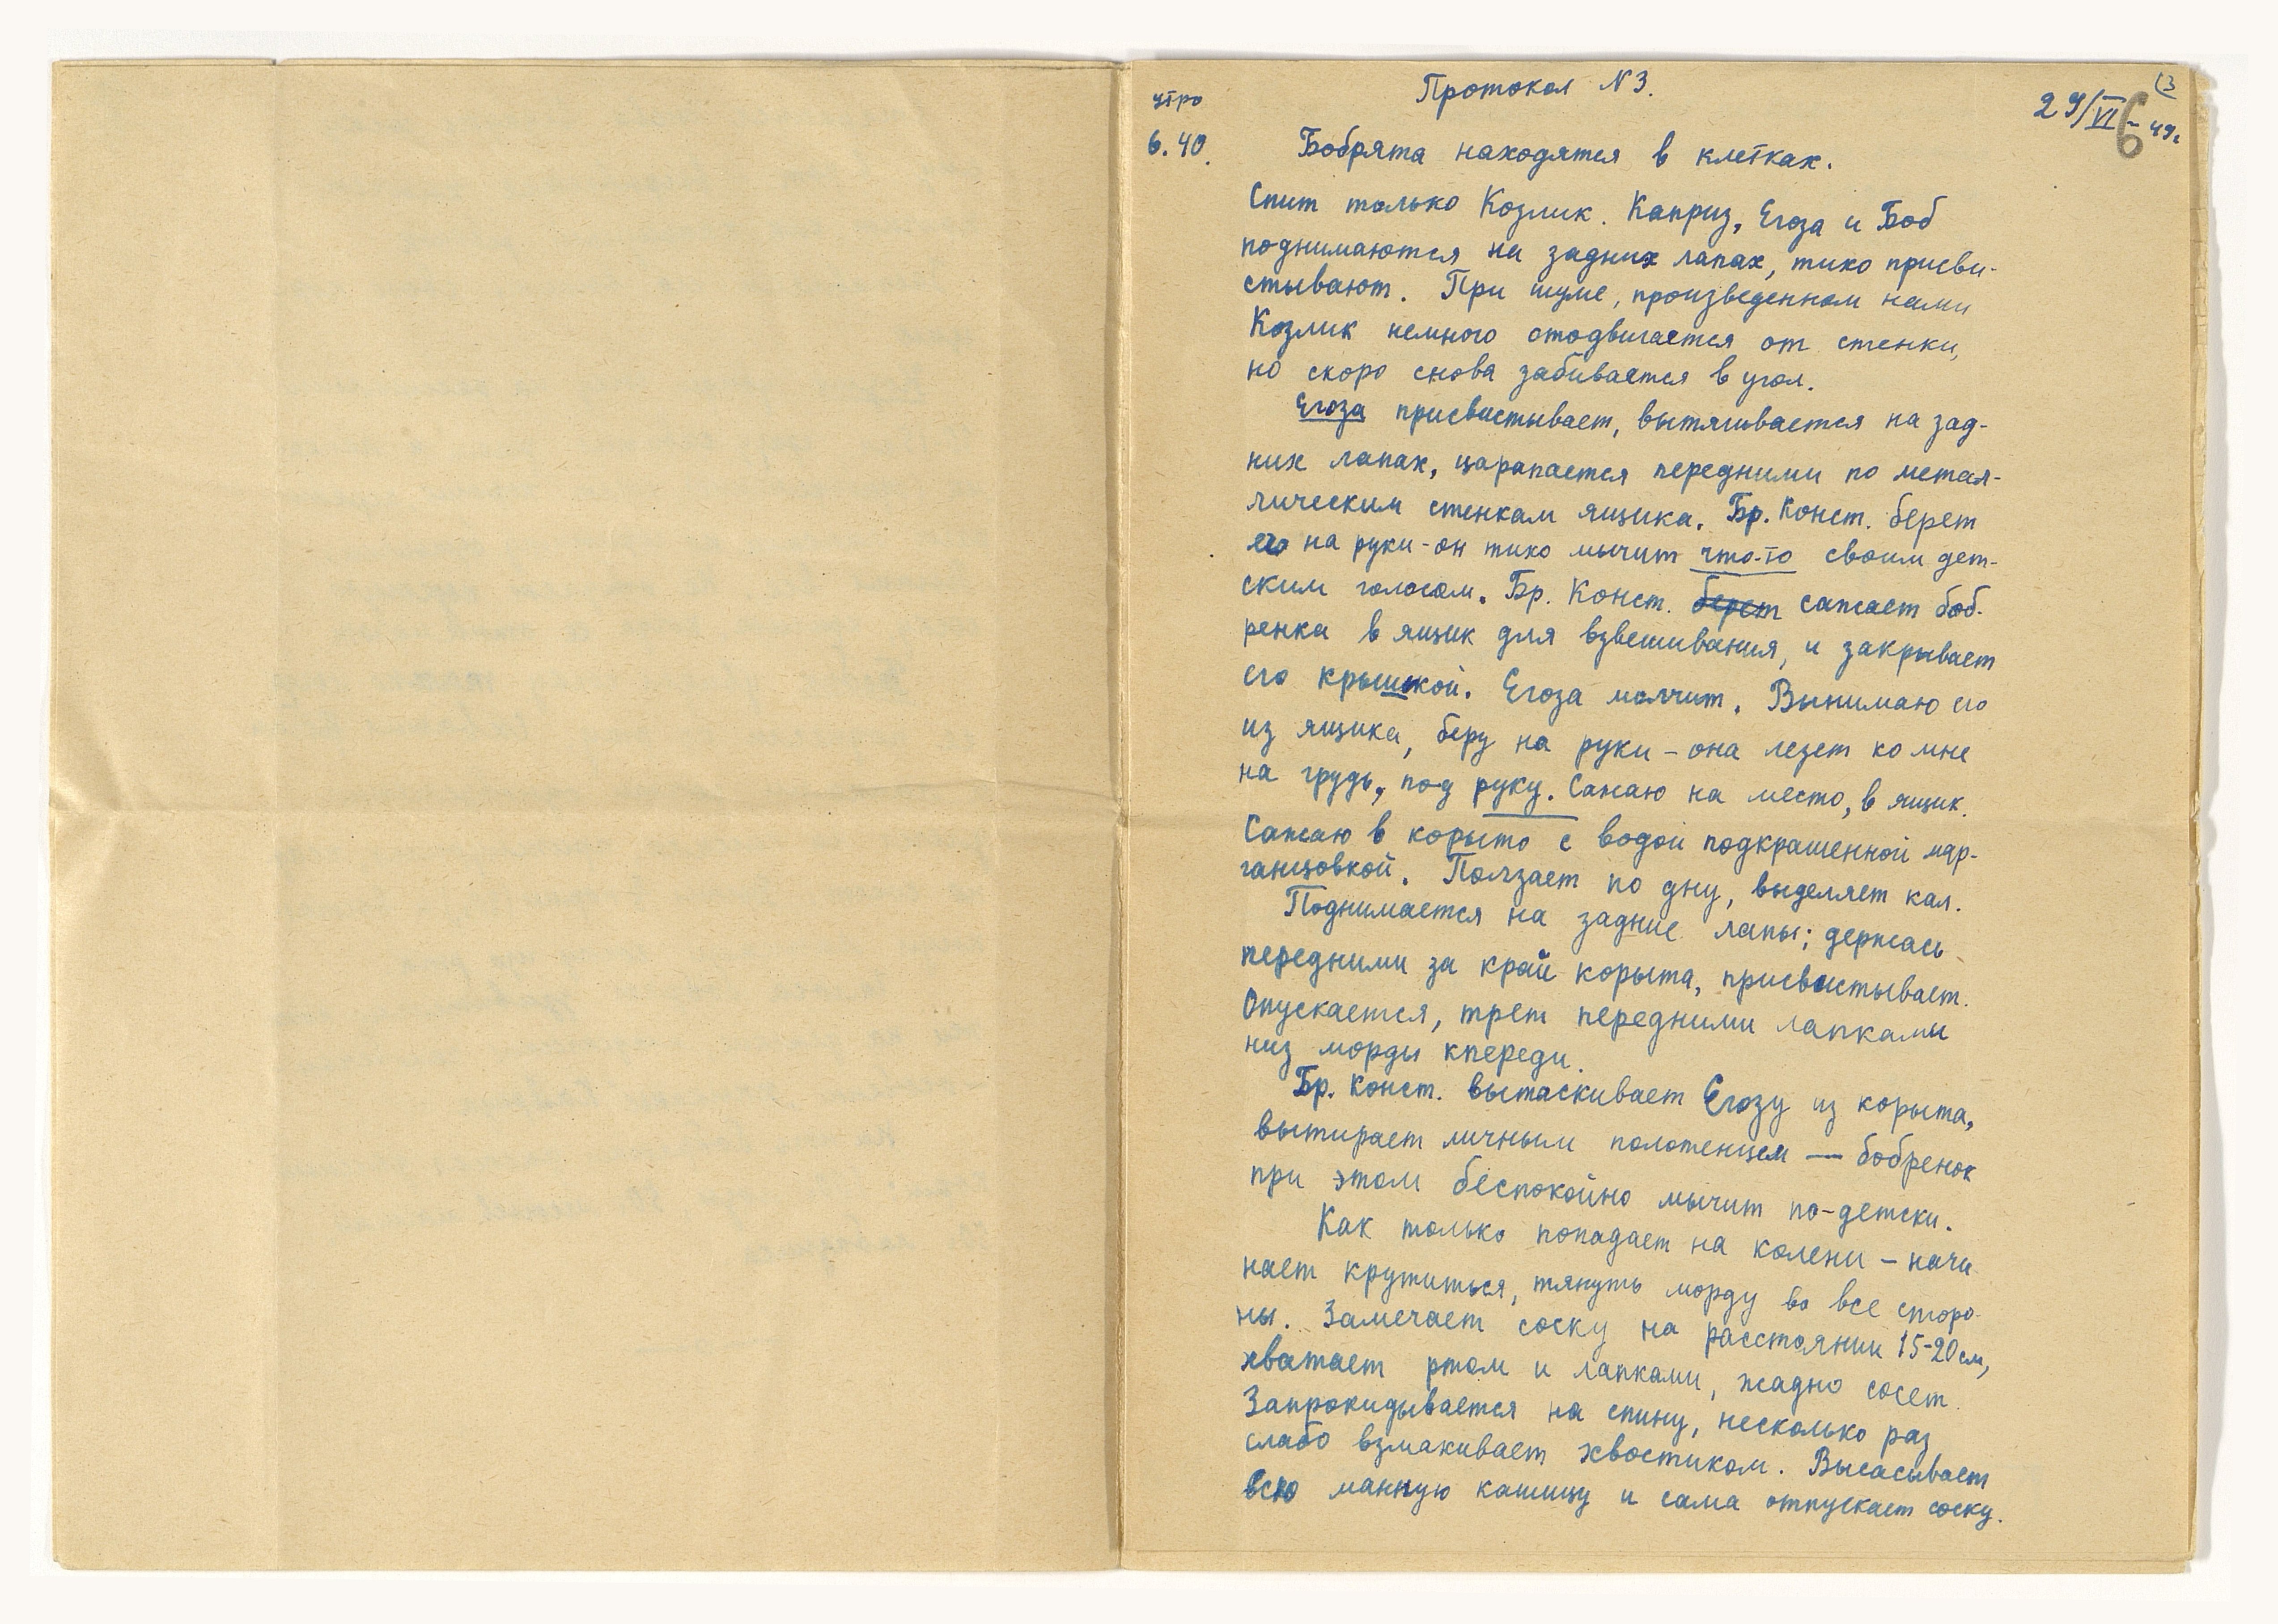 Протокол N 3.
29/VI - 49г
6
утро
6.40.
Бобрята находятся в клетках.
Спит только Козлик. Каприз, Егоза и Боб
поднимаются на задних лапах, тихо присви-
стывают. При шуме, произведенном нами
Козлик немного отодвигается от стенки,
но скоро снова забивается в угол.
Егоза присвистывает, вытягивается на зад-
них лапах, царапается передними по метал-
лическим стенкам ящика. Бр. Конст. берет
его на руки - он тихо мычит что-то своим дет-
ским голосом. Бр. Конст. берет сажает боб-
ренка в ящик для взвешивания, и закрывает
его крышкой. Егоза молчит. Вынимаю его
из ящика, беру на руки - она лезет ко мне
на грудь, под руку. Сажаю на место, в ящик.
Сажаю в корыто с водой подкрашенной мар-
ганцовкой. Ползает по дну, выделяет кал.
Поднимается на задние лапы; держась
передними за край корыта, присвистывает.
Опускается, трет передними лапками
низ морды кпереди.
Бр. Конст. вытаскивает Егозу из корыта,
вытирает личным полотенцем — бобренок
при этом беспокойно мычит по-детски.
Как только попадает на колени - начи
нает крутиться, тянуть морду во все сторо-
ны. Замечает соску на расстоянии 15-20 см,
хватает ртом и лапками, жадно сосет.
Запрокидывается на спину, несколько раз
слабо взмахивает хвостиком. Высасывает
всю манную кашицу и сама отпускает соску.